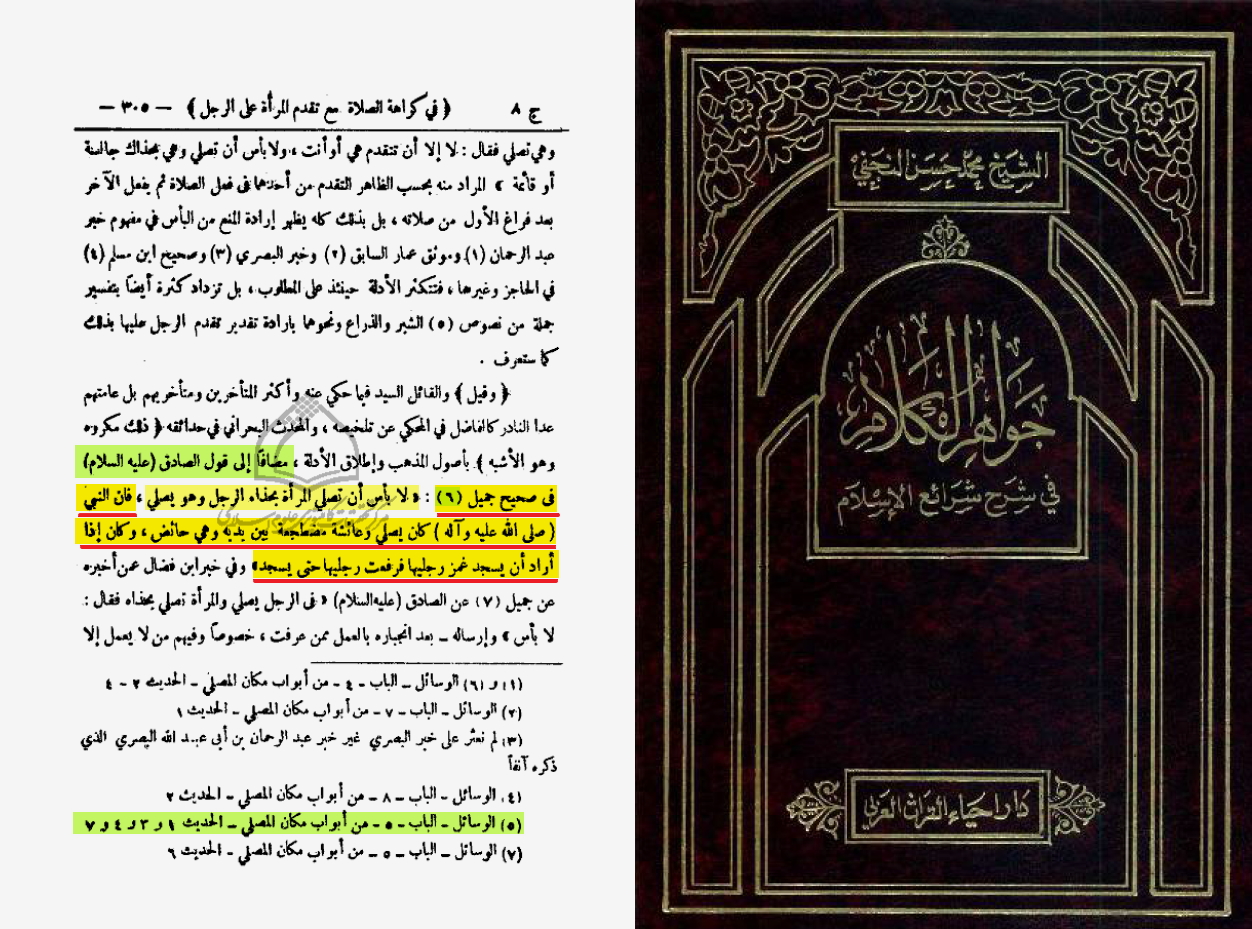 ج ٨ ﴿ في كراهة الصلاة مع تقدم المرأة على الرجل ﴾ — ٣٠٥ —
وهي تصلي فقال : لا إلا أن تتقدم هي أو أنت ، ولا بأس أن تصلي وهي بحذاك جالسة
أو قائمة » المراد منه بحسب الظاهر التقدم من أحدهما في فعل الصلاة ثم يفعل الآخر
بعد فراغ الأول من صلاته ، بل بذلك كله يظهر إرادة المنع من البأس في مفهوم خبر
عبد الرحمان (١) وموثق عمار السابق (٢) وخبر البصري (٣) وصحيح ابن مسلم (٤)
في الحاجز وغيرها ، فتتكثر الأدلة حينئذ على المطلوب ، بل تزداد كثرة أيضاً بتفسير
جملة من نصوص (٥) الشبر والذراع ونحوهما بارادة تقدير تقدم الرجل عليها بذلك
كما ستعرف .
﴿ وقيل ﴾ والقائل السيد فيما حكي عنه وأكثر المتأخرين ومتأخريهم بل عامتهم
عدا النادر كالفاضل في المحكي عن تلخيصه ، والمحدث البحراني في حدائقه ﴿ ذلك مكروه
وهو الأشبه ﴾ بأصول المذهب وإطلاق الأدلة ، مضافاً إلى قول الصادق (عليه السلام)
في صحيح جميل (٦) : « لا بأس أن تصلي المرأة بحذاء الرجل وهو يصلي ، فان النبي
( صلى الله عليه وآله ) كان يصلي وعائشة مضطجعة بين يديه وهي حائض ، وكان إذا
أراد أن يسجد غمز رجليها فرفعت رجليها حتى يسجد » وفي خبر ابن فضال عمن أخبره
عن جميل (٧) عن الصادق (عليه السلام) « في الرجل يصلي والمرأة تصلي بحذاه فقال :
لا بأس » وإرساله ـ بعد انجباره بالعمل ممن عرفت ، خصوصاً وفيهم من لا يعمل إلا
(١) و (٦) الوسائل ـ الباب ـ ٤ ـ من أبواب مكان المصلي ـ الحديث ٢ ـ ٤
(٢) الوسائل ـ الباب ـ ٧ ـ من أبواب مكان المصلي ـ الحديث ١
(٣) لم نعثر على خبر البصري غير خبر عبد الرحمان بن أبي عبد الله البصري الذي
ذكره آنفاً
(٤) الوسائل ـ الباب ـ ٨ ـ من أبواب مكان المصلي ـ الحديث ٢
(٥) الوسائل ـ الباب ـ ٥ ـ من أبواب مكان المصلي ـ الحديث ١ و ٣ و ٤ و ٧
(٧) الوسائل ـ الباب ـ ٥ ـ من أبواب مكان المصلي ـ الحديث ٦
الشيخ محمد حسن النجفي
جواهر الكلام
في شرح شرائع الإسلام
دار احياء التراث العربي